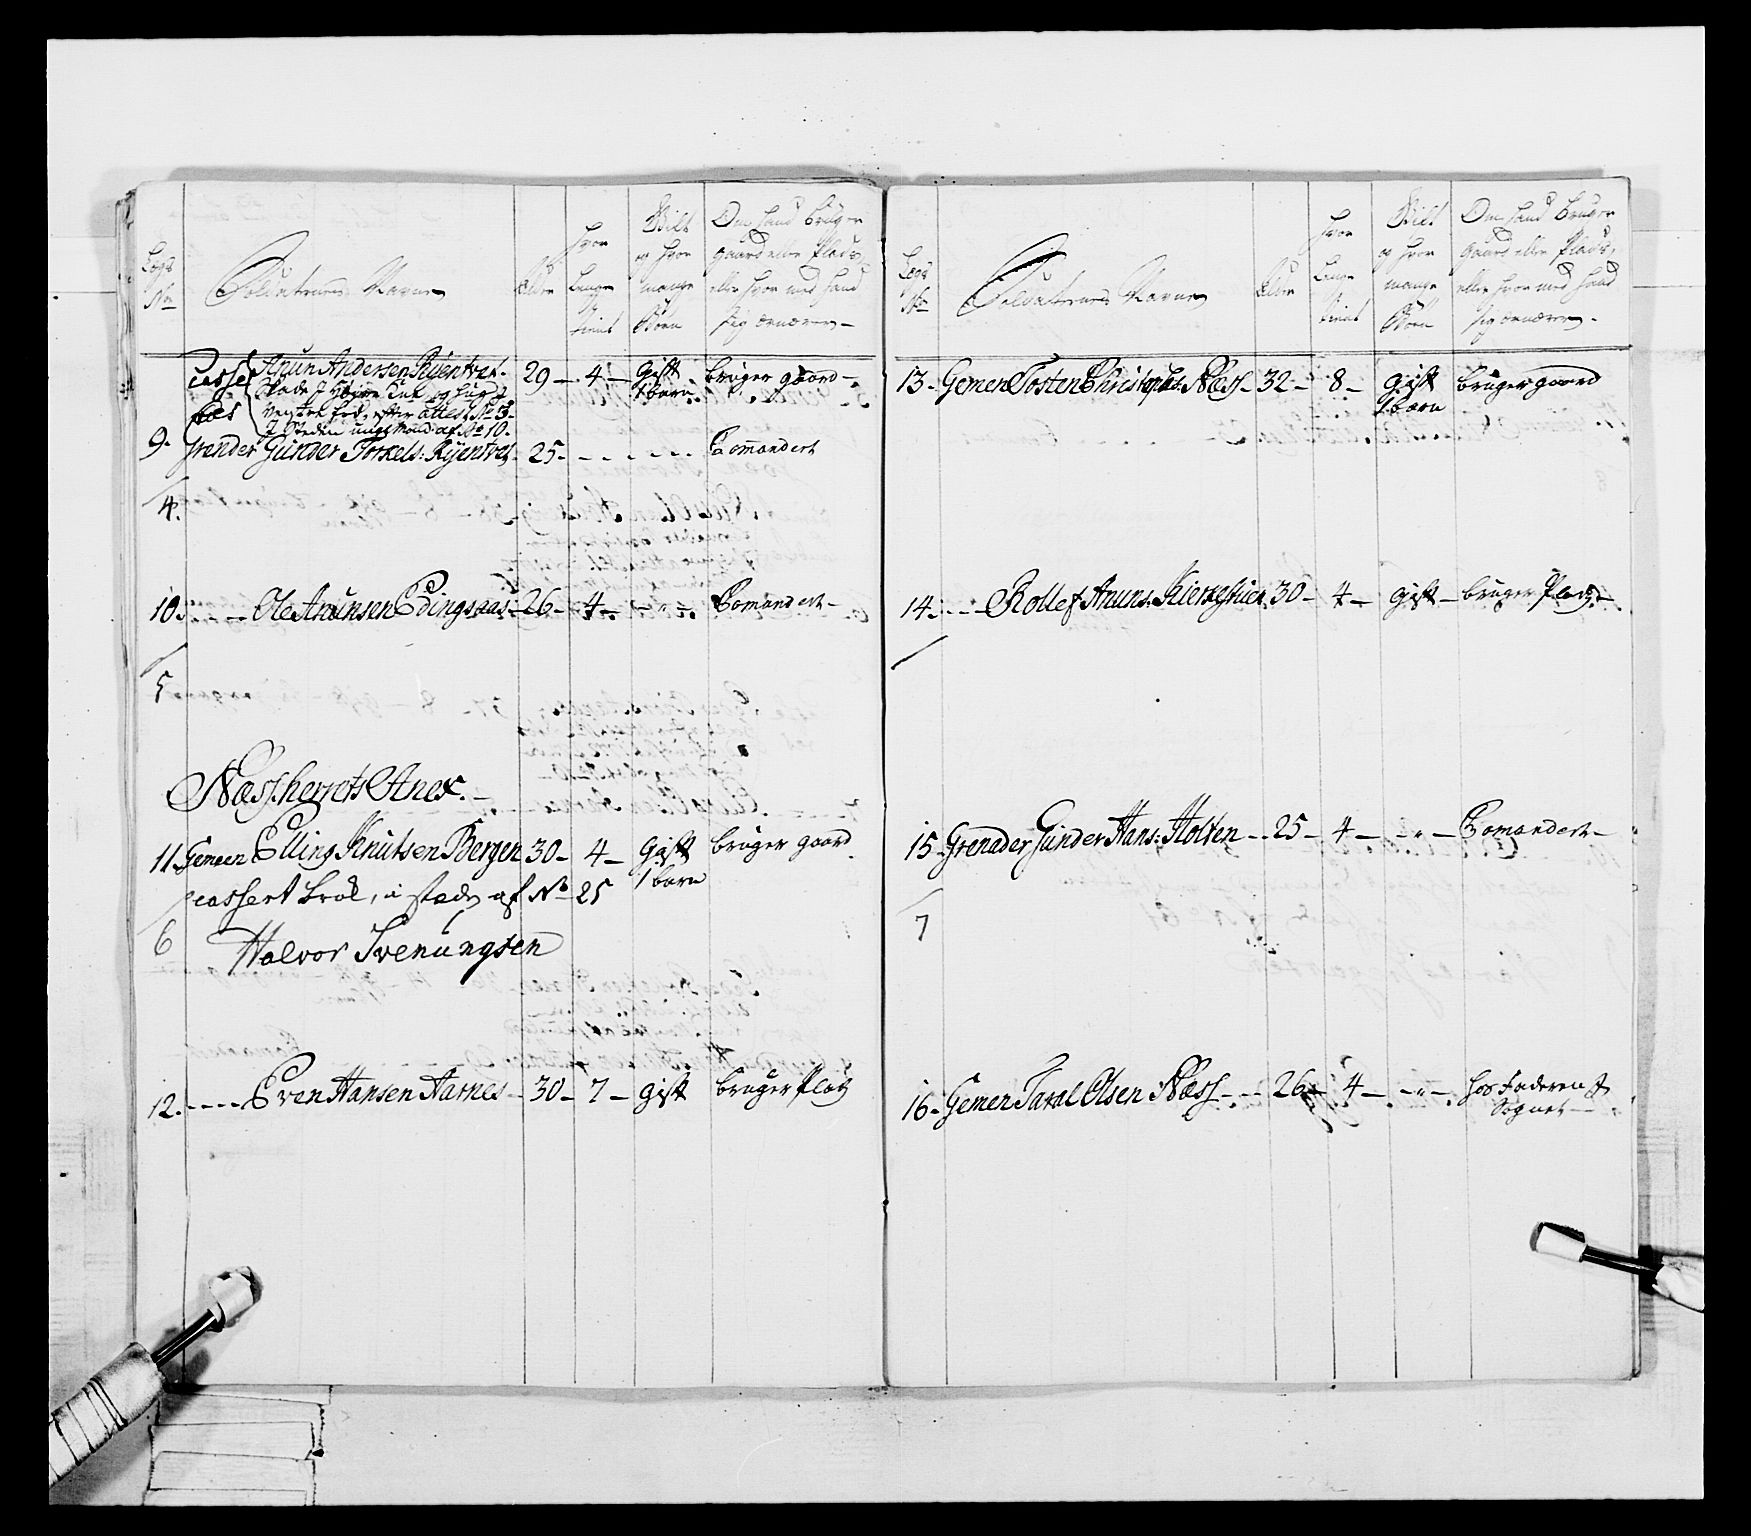 Legs No
Soldaternes Navne
Alder
hvor Længe tient
Gift og hvor mange Børn
Om hand bruger gaard eller Plads, eller hvor med hand sig ernærer
Casse
Anun Andersen
29 - 4 - Gift 1 barn bruger gaard -
venster fod, efter attest No 3.
I Steden ungt Mand: af No 10.
9. Grender Gunder Torkels: 25 - Comandert
4.
10. Ole Anunsen Edingsaas - 26 - 4 - " - Comandert -
5
Næsherrets Anex. -
11. Gemeen Elling Knutsen Bergen 30 - 4 - Gift 1 barn bruger gaard
cassert i stæde af No 25
6 Halvor Svenungsen
12. Even Hansen Aarnes - 30 - 7 - gift bruger Platz
Legs No
Soldaternes Navne
Alder
hvor Længe tient
Gift og hvor mange Børn
Om hand bruger gaard eller Plads, eller hvor med hand sig ernærer -
13 - Gemen Tosten Christophs: Næss - 32 - 8 - gift 1 barn bruger gaard
14. Rollef Anuns: 30 - 4 - gift - bruger Platz -
15 - Grenader Gunder Hans: Holten - 25 - 4 - " - Comandert -
7
16 - Gemen Taral Olsen Næss - 26 - 4 - " - hos Faderen I
Sognet -